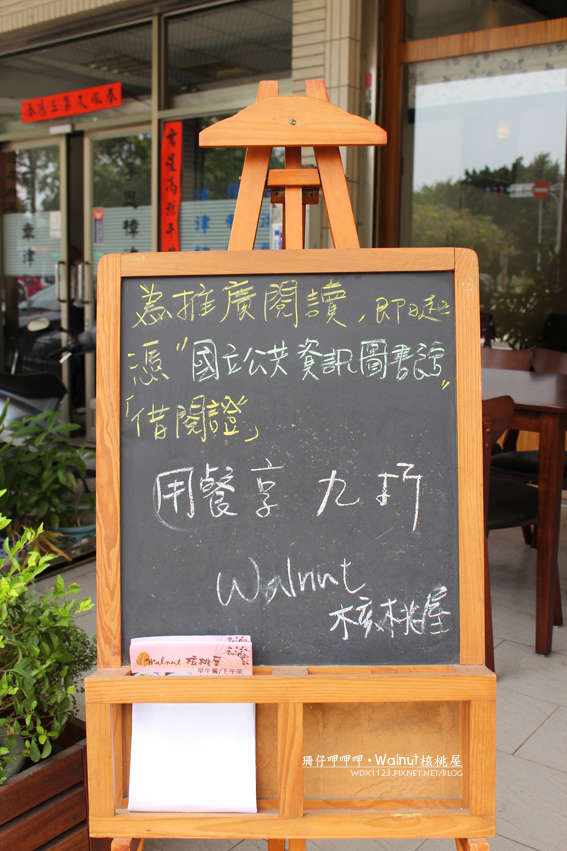 為推廣閱讀,即日起
憑"國立公共資訊圖書館"
「借閱證」
用餐享 九折
Walnut
核桃屋
Walnut 核桃屋
早午餐/下午茶
珮仔呷呷呷·Walnut核桃屋
WDX1123.PIXNET.NET/BLOG